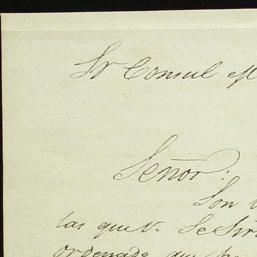 Sr Consul
Señor:
Son
las que V. Se
ordenado que